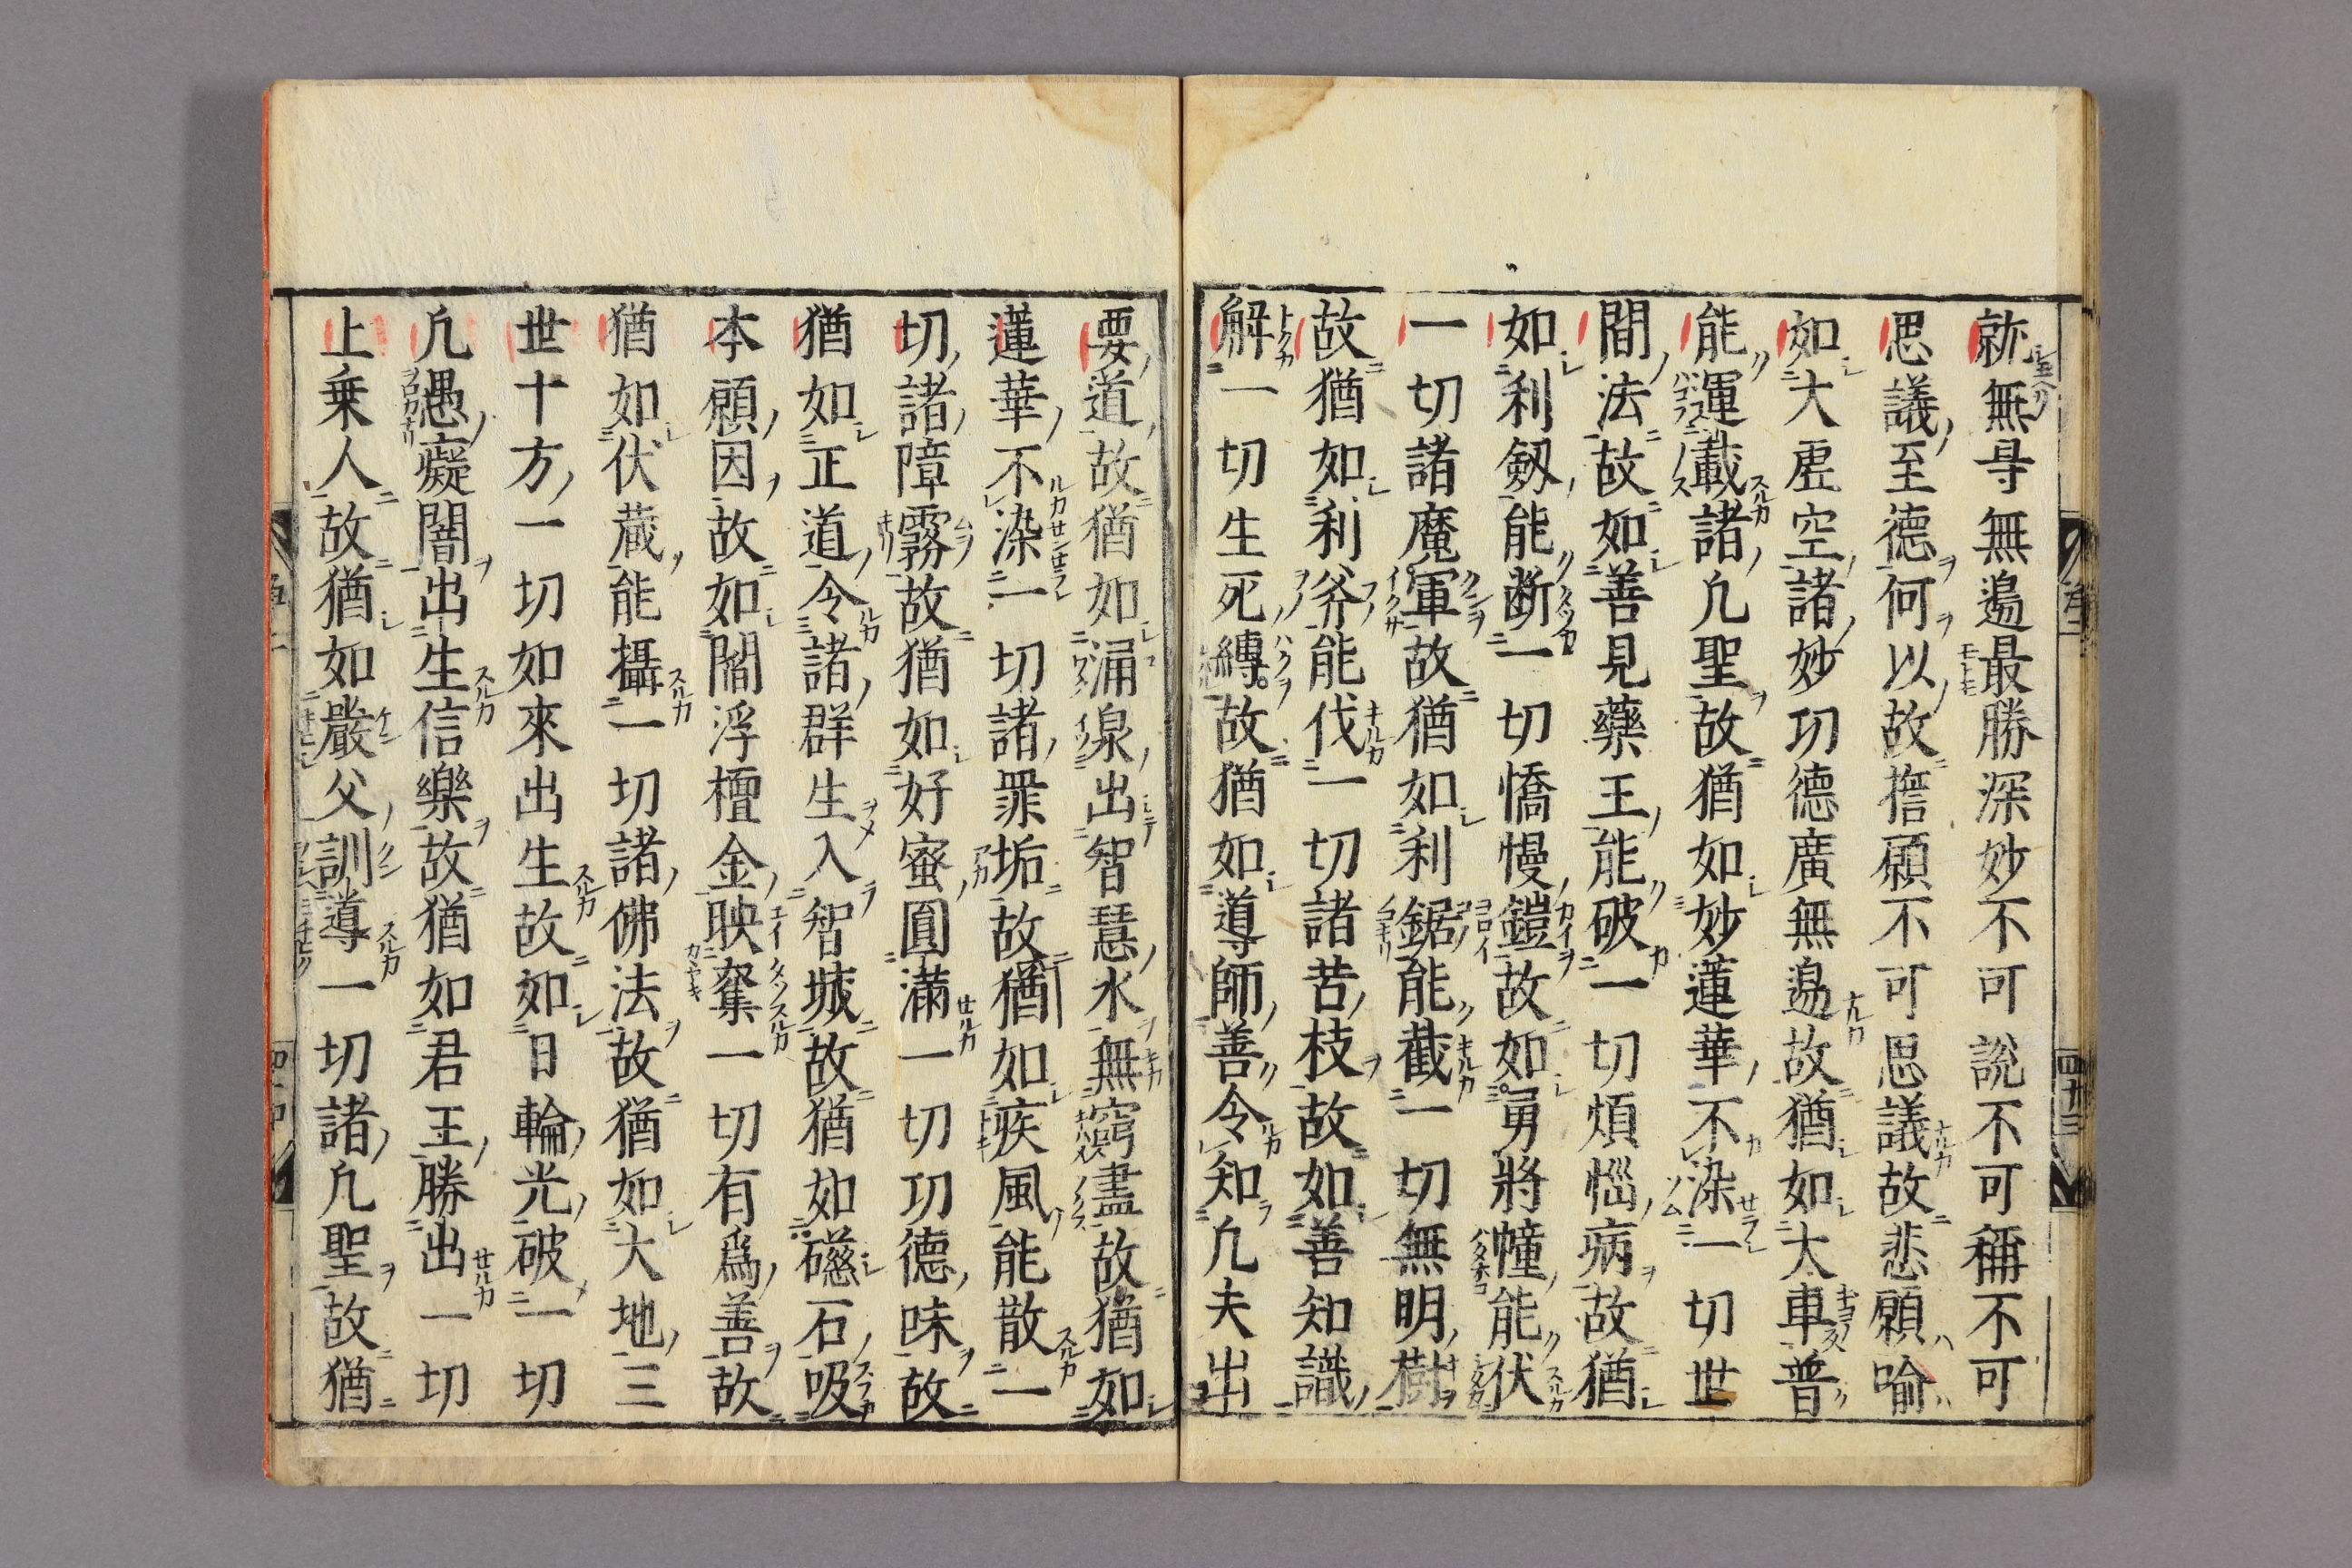 就無㝵無邉最勝深妙不可說不可稱不可
思議至德何以故擔願不可思議故悲願喻
如大虗空諸妙功德廣無邉故猶如大車普
能運載諸凢聖故猶如妙蓮華不染一切世
間法故如善見藥王能破一切煩惱病故猶
如利劔能断一切憍慢鎧故如勇將幢能伏
一切諸魔軍故猶如利鋸能截一切無明樹
故猶如利斧能伐一切諸苦枝故如善知識
解一切生死縳故猶如導師善令知凢夫出
要道故猶如涌泉出智慧水無窮盡故猶如
蓮華不染一切諸罪垢故猶如疾風能散一
切諸障霧故猶如好蜜圓滿一切功德味故
猶如正道令諸群生入智城故猶如磁石吸
本願因故如閻浮檀金映奪一切有爲善故
猶如伏藏能攝一切諸佛法故猶如大地三
世十方一切如來出生故如日輪光破一切
凢愚癡闇出生信樂故猶如君王勝出一切
上乗人故猶如嚴父訓導一切諸凢聖故猶